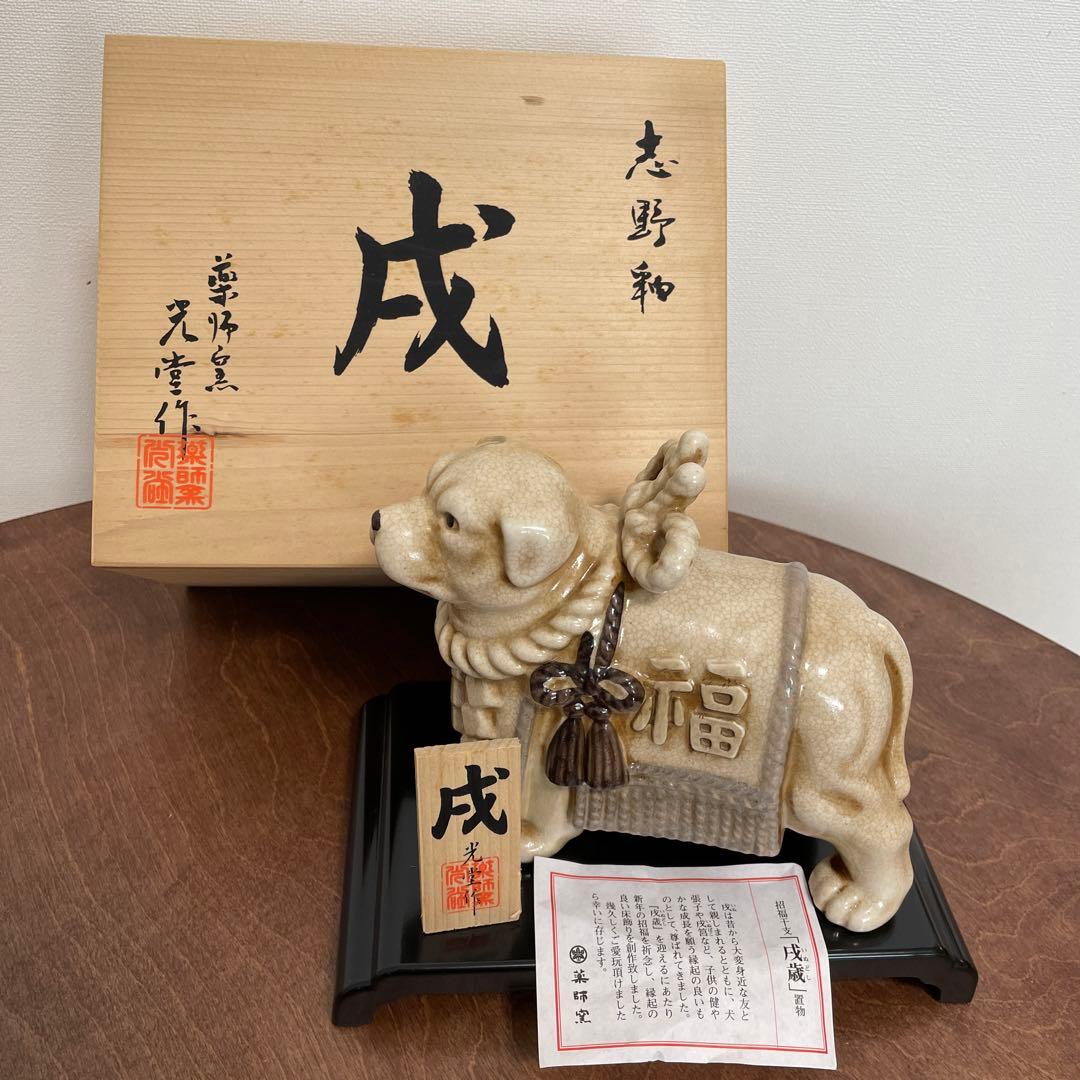 志野釉
戌
薬師窯
光堂作
薬師窯
光堂
福
戌
光堂作
薬師窯
光堂
招福干支「戌歳」置物
いぬどし
戌は昔から大変身近な友と
いぬ
して親しまれるとともに、犬
張子や戌筥など、子供の健や
かな成長を願う縁起の良いも
のとして、尊ばれてきました。
『戌歳』を迎えるにあたり
新年の招福を祈念し、縁起の
良い床飾りを創作致しました。
幾久しくご愛玩頂けました
ら幸いに存じます。
薬師窯